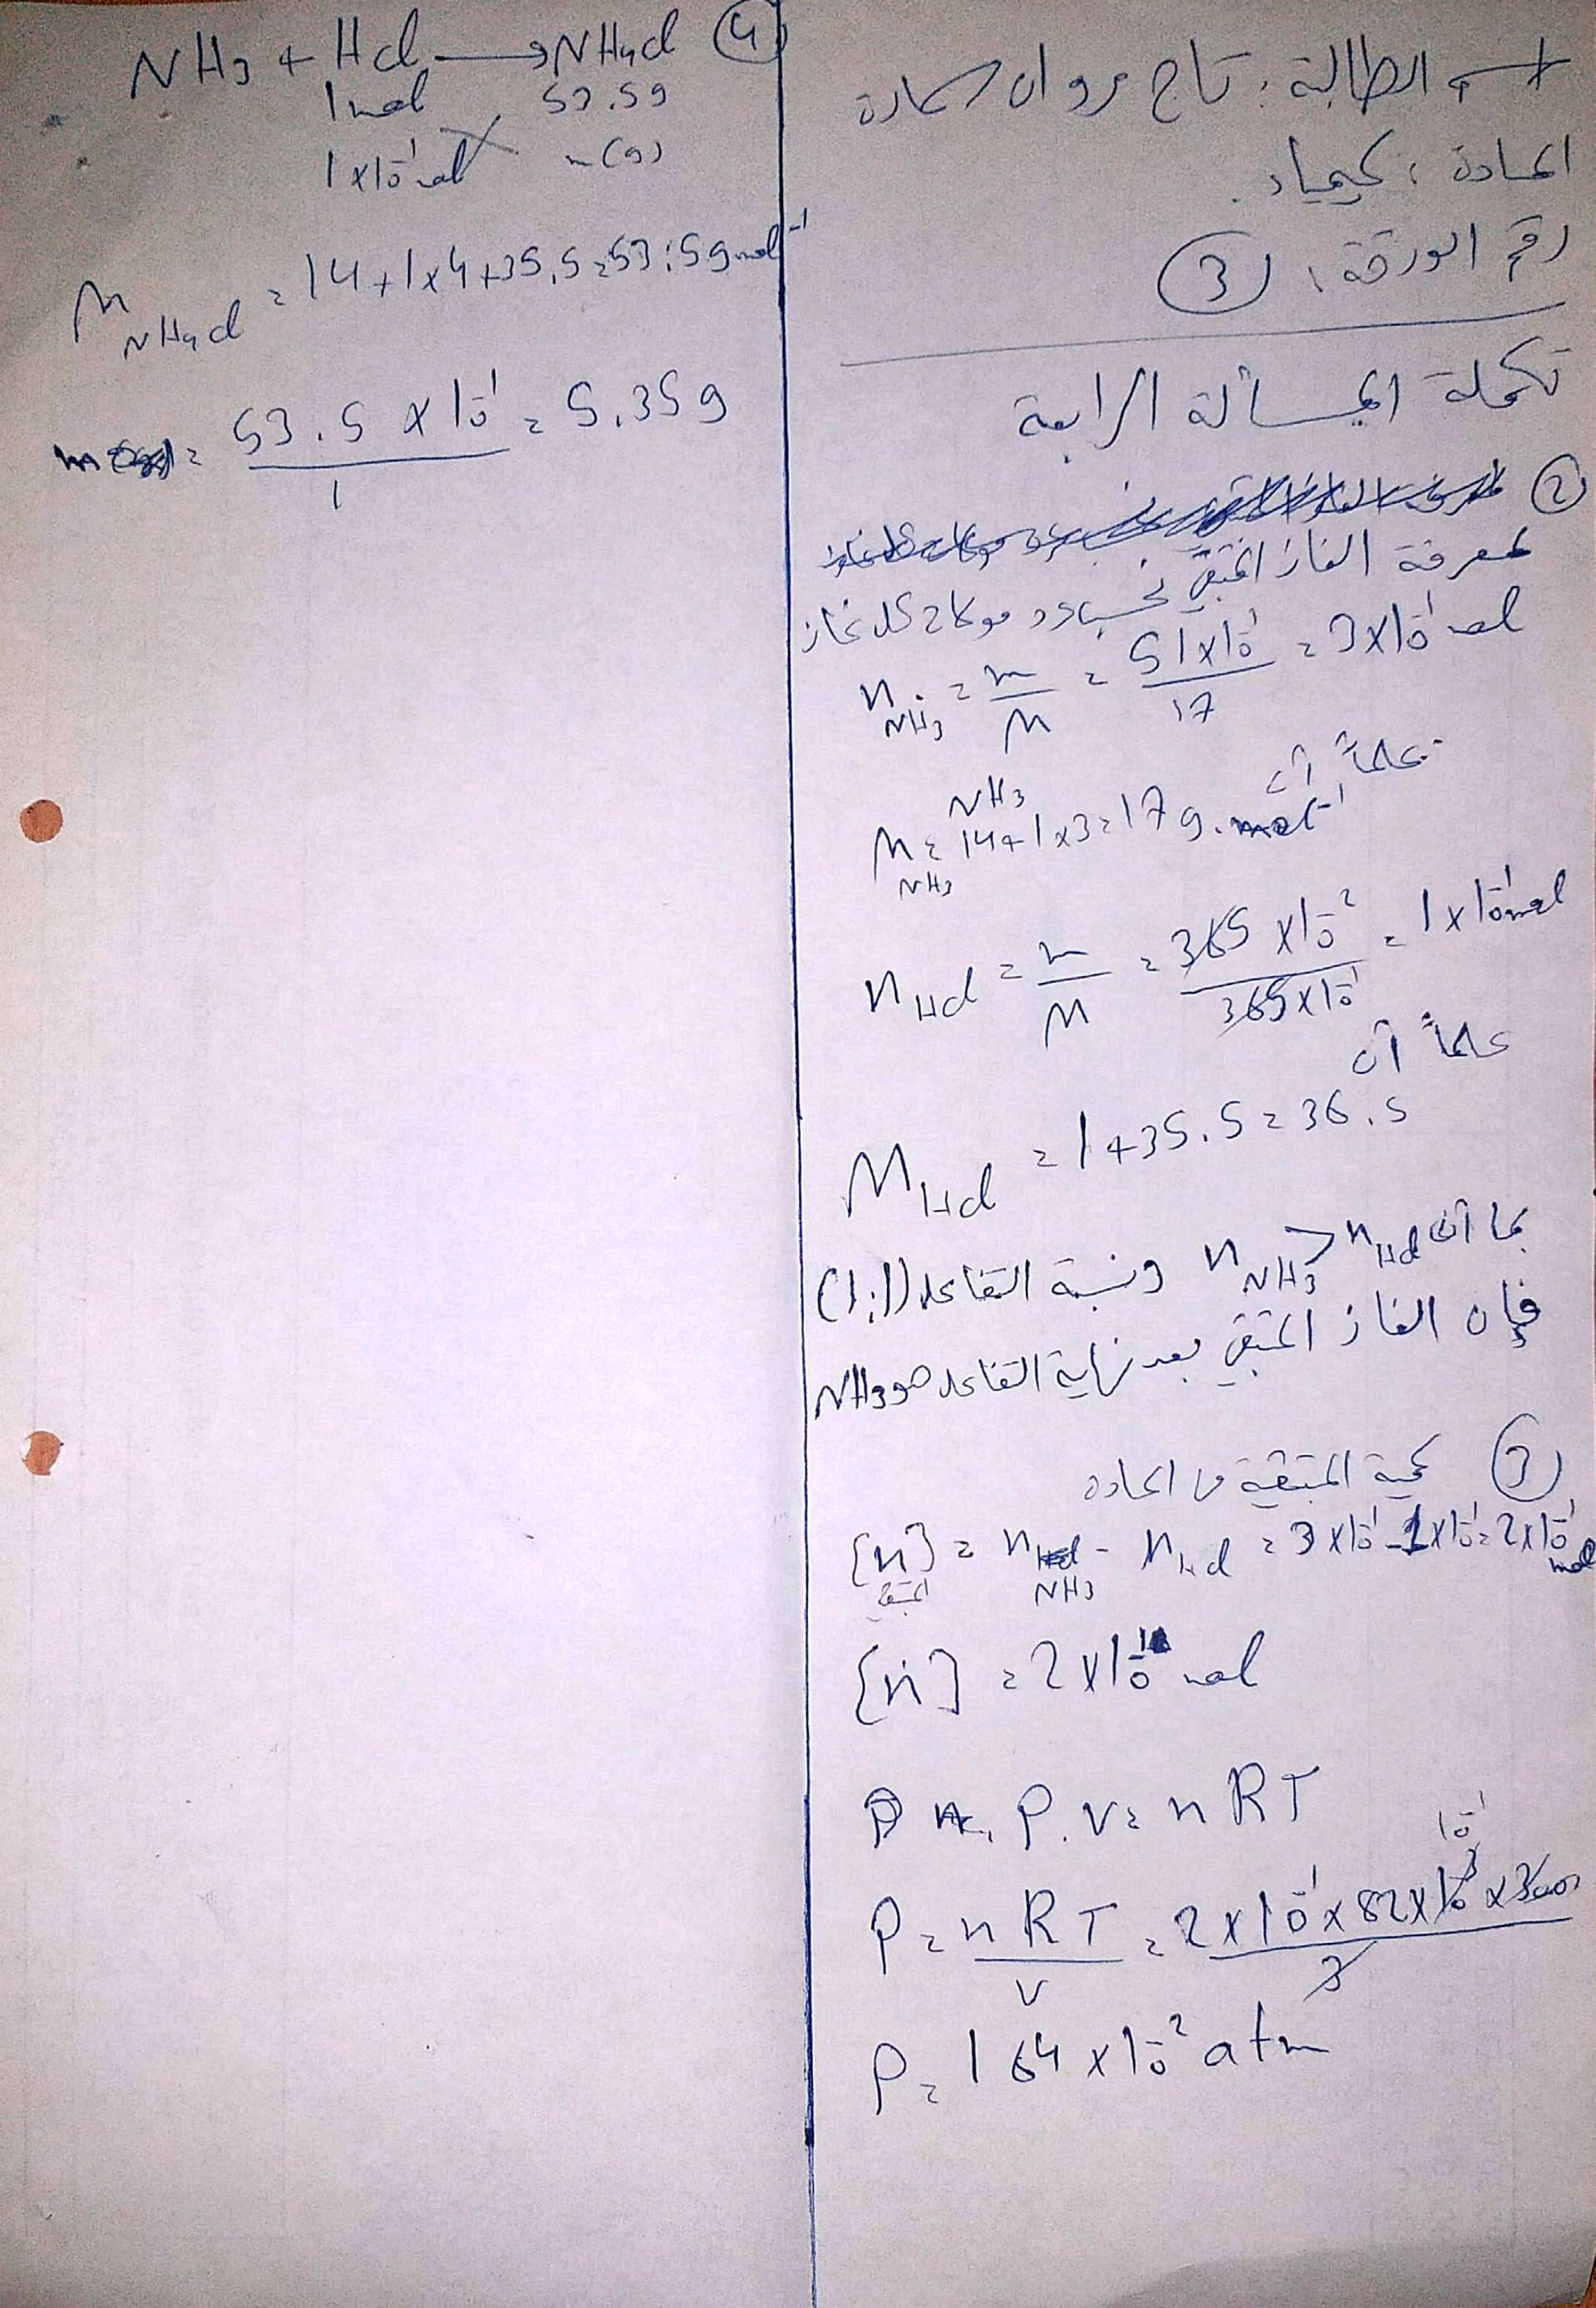 الطالبة: تاج مروان سمارة
المادة: كيمياء.
رقم الورقة: 3
تكملة المسألة الرابعة
2
لمعرفة الغاز المتبقي نحسب عدد مولات كل غاز
n NH3 = m/M = 51×10^-1/17 = 3×10^-1 mol
علماً أن
NH3
M NH3 = 14+1×3=17 g.mol^-1
n HCl = m/M = 365×10^-2/365×10^-1 = 1×10^-1 mol
علماً أن
M HCl = 1+35.5=36.5
بما أن n NH3 > n HCl ونسبة التفاعل (1:1)
فإن الغاز المتبقي بعد نهاية التفاعل هو NH3
3 كمية المتبقية من المادة
[n] المتبقي = n NH3 - n HCl = 3×10^-1 - 1×10^-1 = 2×10^-1 mol
[n] = 2×10^-1 mol
P.V = nRT
P = nRT/V = 2×10^-1×82×10^-3×300/3
10^-1
P = 164×10^-2 atm
4 NH3 + HCl → NH4Cl
1mol 53.5g
1×10^-1 mol m(g)
M NH4Cl = 14+1×4+35.5=53.5 g mol^-1
m = 53.5×10^-1/1 = 5.35g